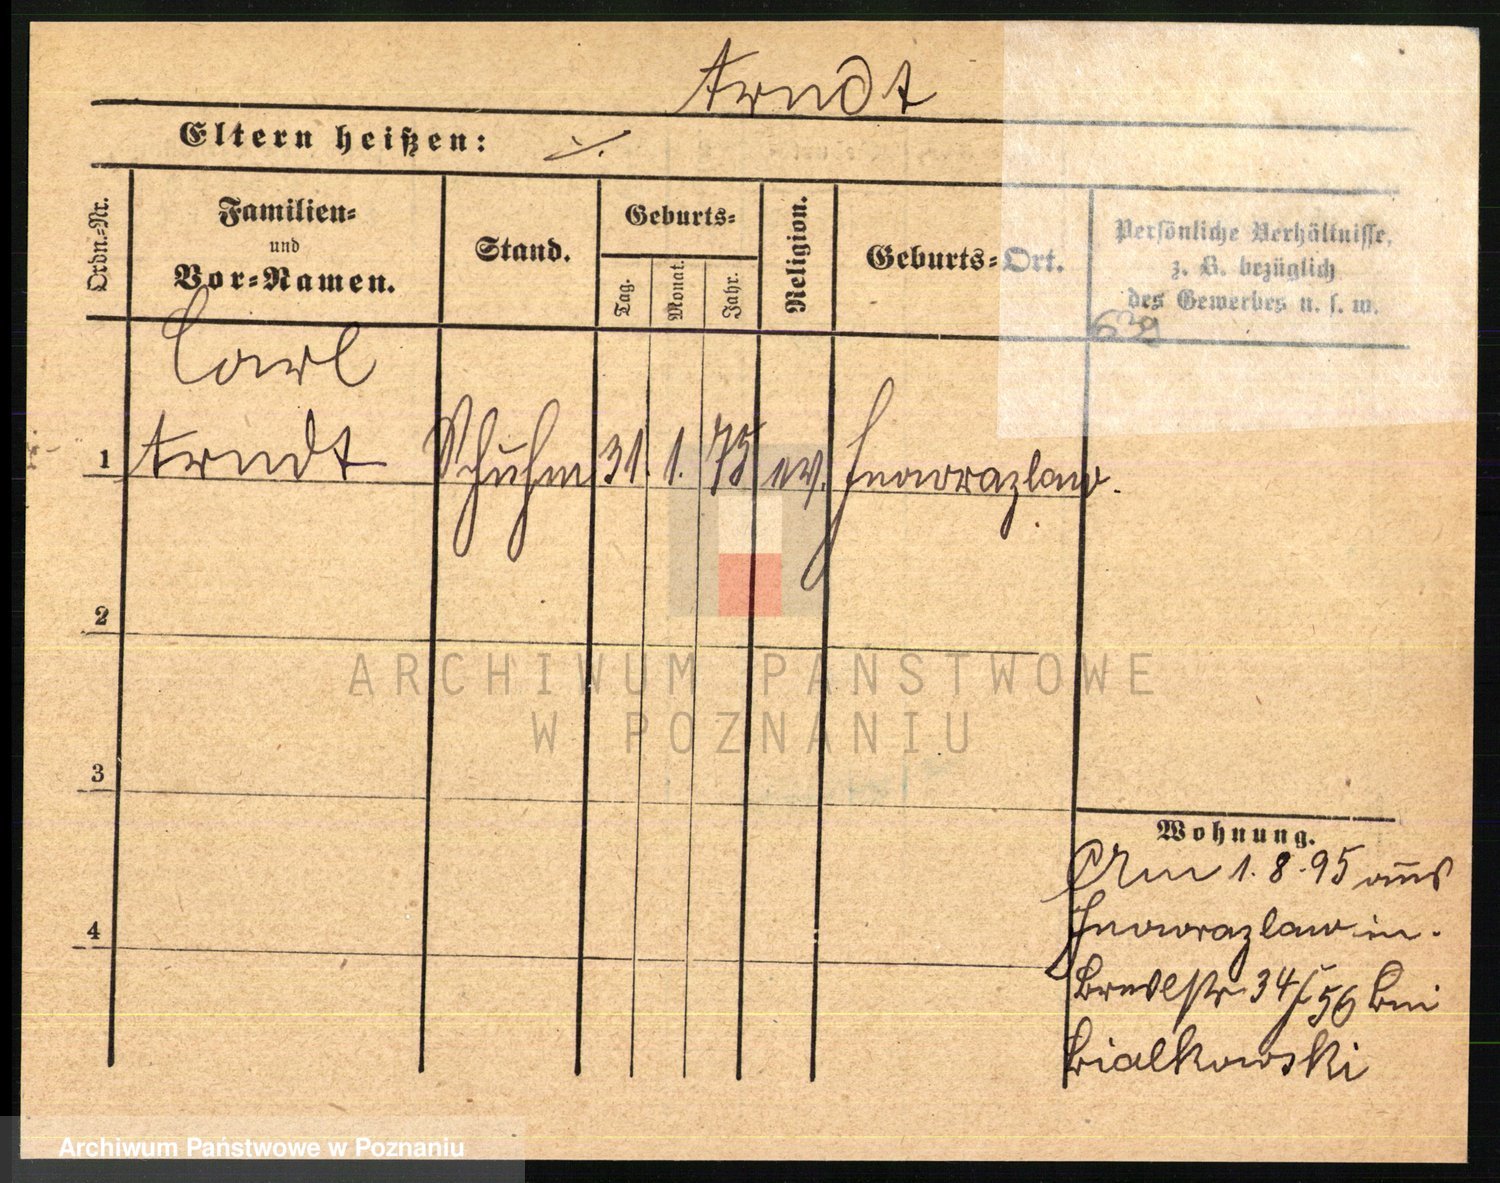 Arndt
Eltern heißen: ./.
Ordn.-Nr.
Familien-
und
Vor-Namen.
Stand.
Geburts-
Tag.
Monat.
Jahr.
Religion.
Geburts-Ort.
Persönliche Verhältnisse,
z. B. bezüglich
des Gewerbes u. s. w.
Carl
1 Arndt Schuhm 31. 1. 75 ev. Inowrazlaw.
2
3
4
Wohnung.
Am 1. 8. 95 aus
Inowrazlaw in
34/56 bei
Bialkowski
ARCHIWUM PAŃSTWOWE
W POZNANIU
Archiwum Państwowe w Poznaniu